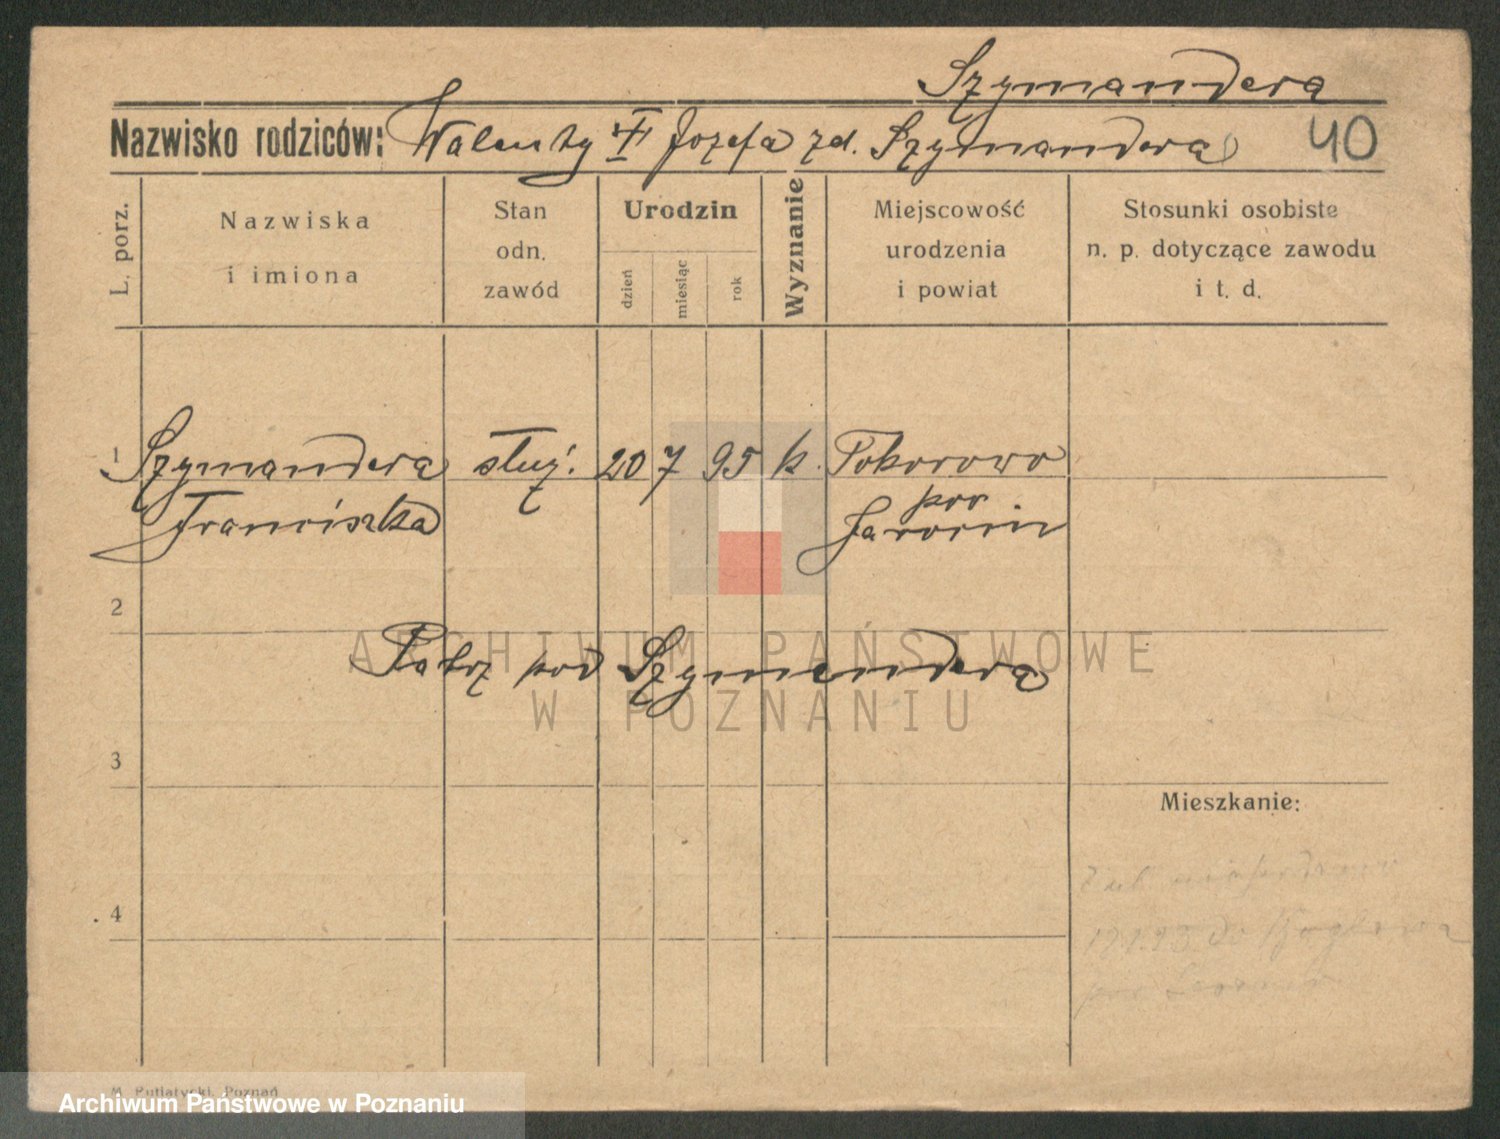 Szymandera
Nazwisko rodziców: Walenty Józefa zd. Szymandera 40
L. porz.
Nazwiska i imiona
Stan odn. zawód
Urodzin
dzień
miesiąc
rok
Wyznanie
Miejscowość urodzenia i powiat
Stosunki osobiste n. p. dotyczące zawodu i t. d.
1 Szymandera służ. 20 7 95 k. Pokorowo
Franciszka pow Jarocin
2
Patrz pod Szymendera
ARCHIWUM PAŃSTWOWE
W POZNANIU
3
Mieszkanie:
4
M. Putiatycki, Poznań
Archiwum Państwowe w Poznaniu